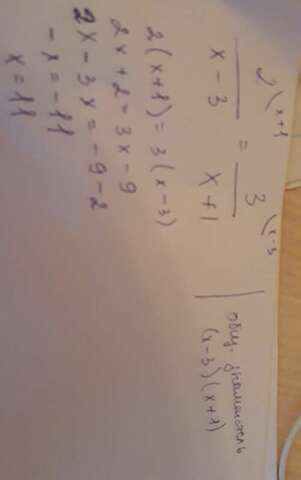 2 (x+1    3 (x-3
― = ―
x - 3    x + 1
общ. знаменатель
(x-3)(x+1)
2(x+1) = 3(x-3)
2x+2 = 3x-9
2x-3x = -9-2
-x = -11
x = 11